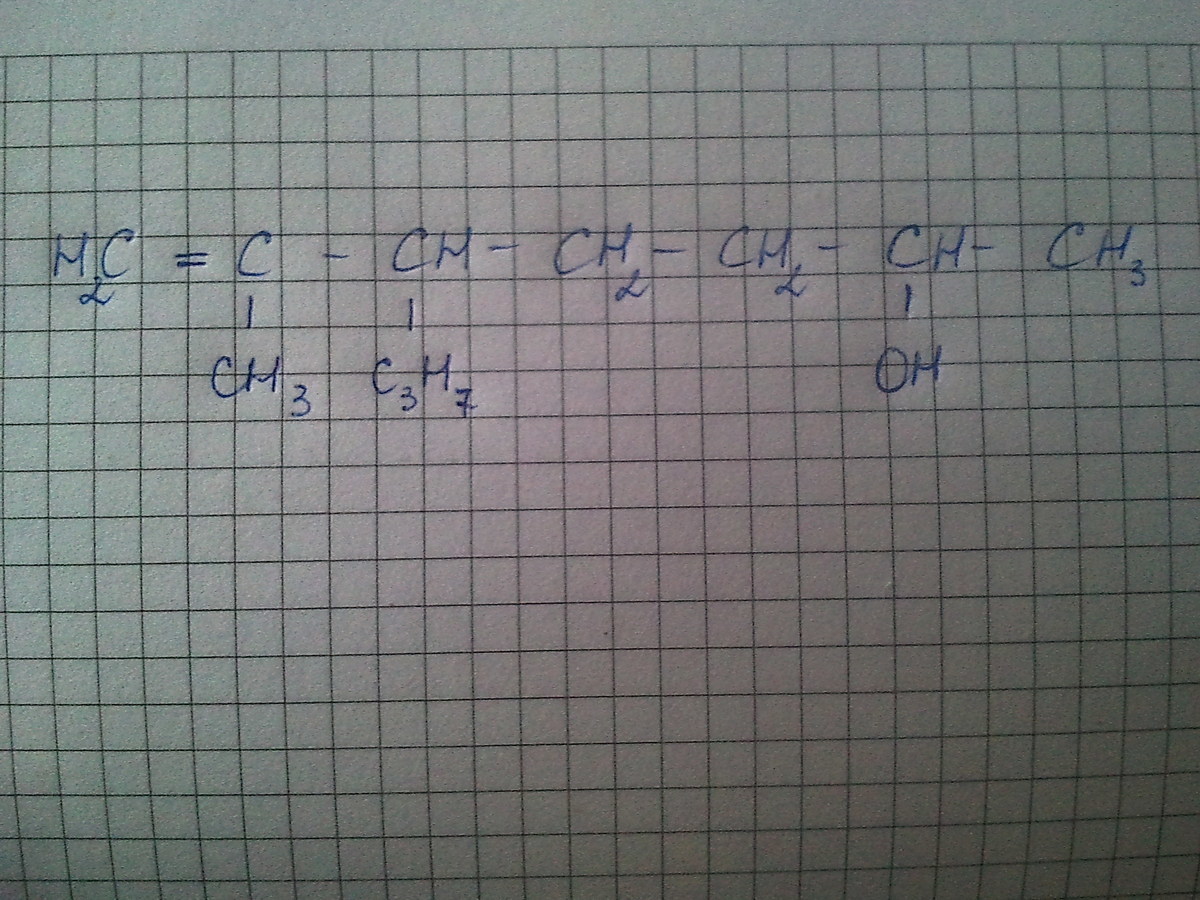 H₂C = C - CH - CH₂ - CH₂ - CH - CH₃
| | |
CH₃ C₃H₇ OH